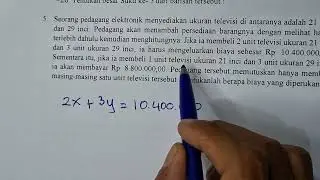 -20 Tentukan besar suku ke- 3 dari barisan tersebut !
5. Seorang pedagang elektronik menyediakan ukuran televisi di antaranya adalah 21
dan 29 inci. Pedagang akan menambah persediaan barangnya dengan melihat ha
terlebih dahulu kemudian menghitungnya. Jika ia membeli 2 unit televisi ukuran 21
dan 3 unit ukuran 29 inci, ia harus mengeluarkan biaya sebesar Rp 10.400.000
Sementara itu, jika ia membeli 1 unit televisi ukuran 21 inci dan 3 unit ukuran 29 inci
ia akan membayar Rp 8.800.000,00. Pedagang tersebut memutuskan hanya memb
masing-masing satu unit televisi tersebut. Tentukanlah berapa biaya yang diperukan
2x + 3y = 10.400.000